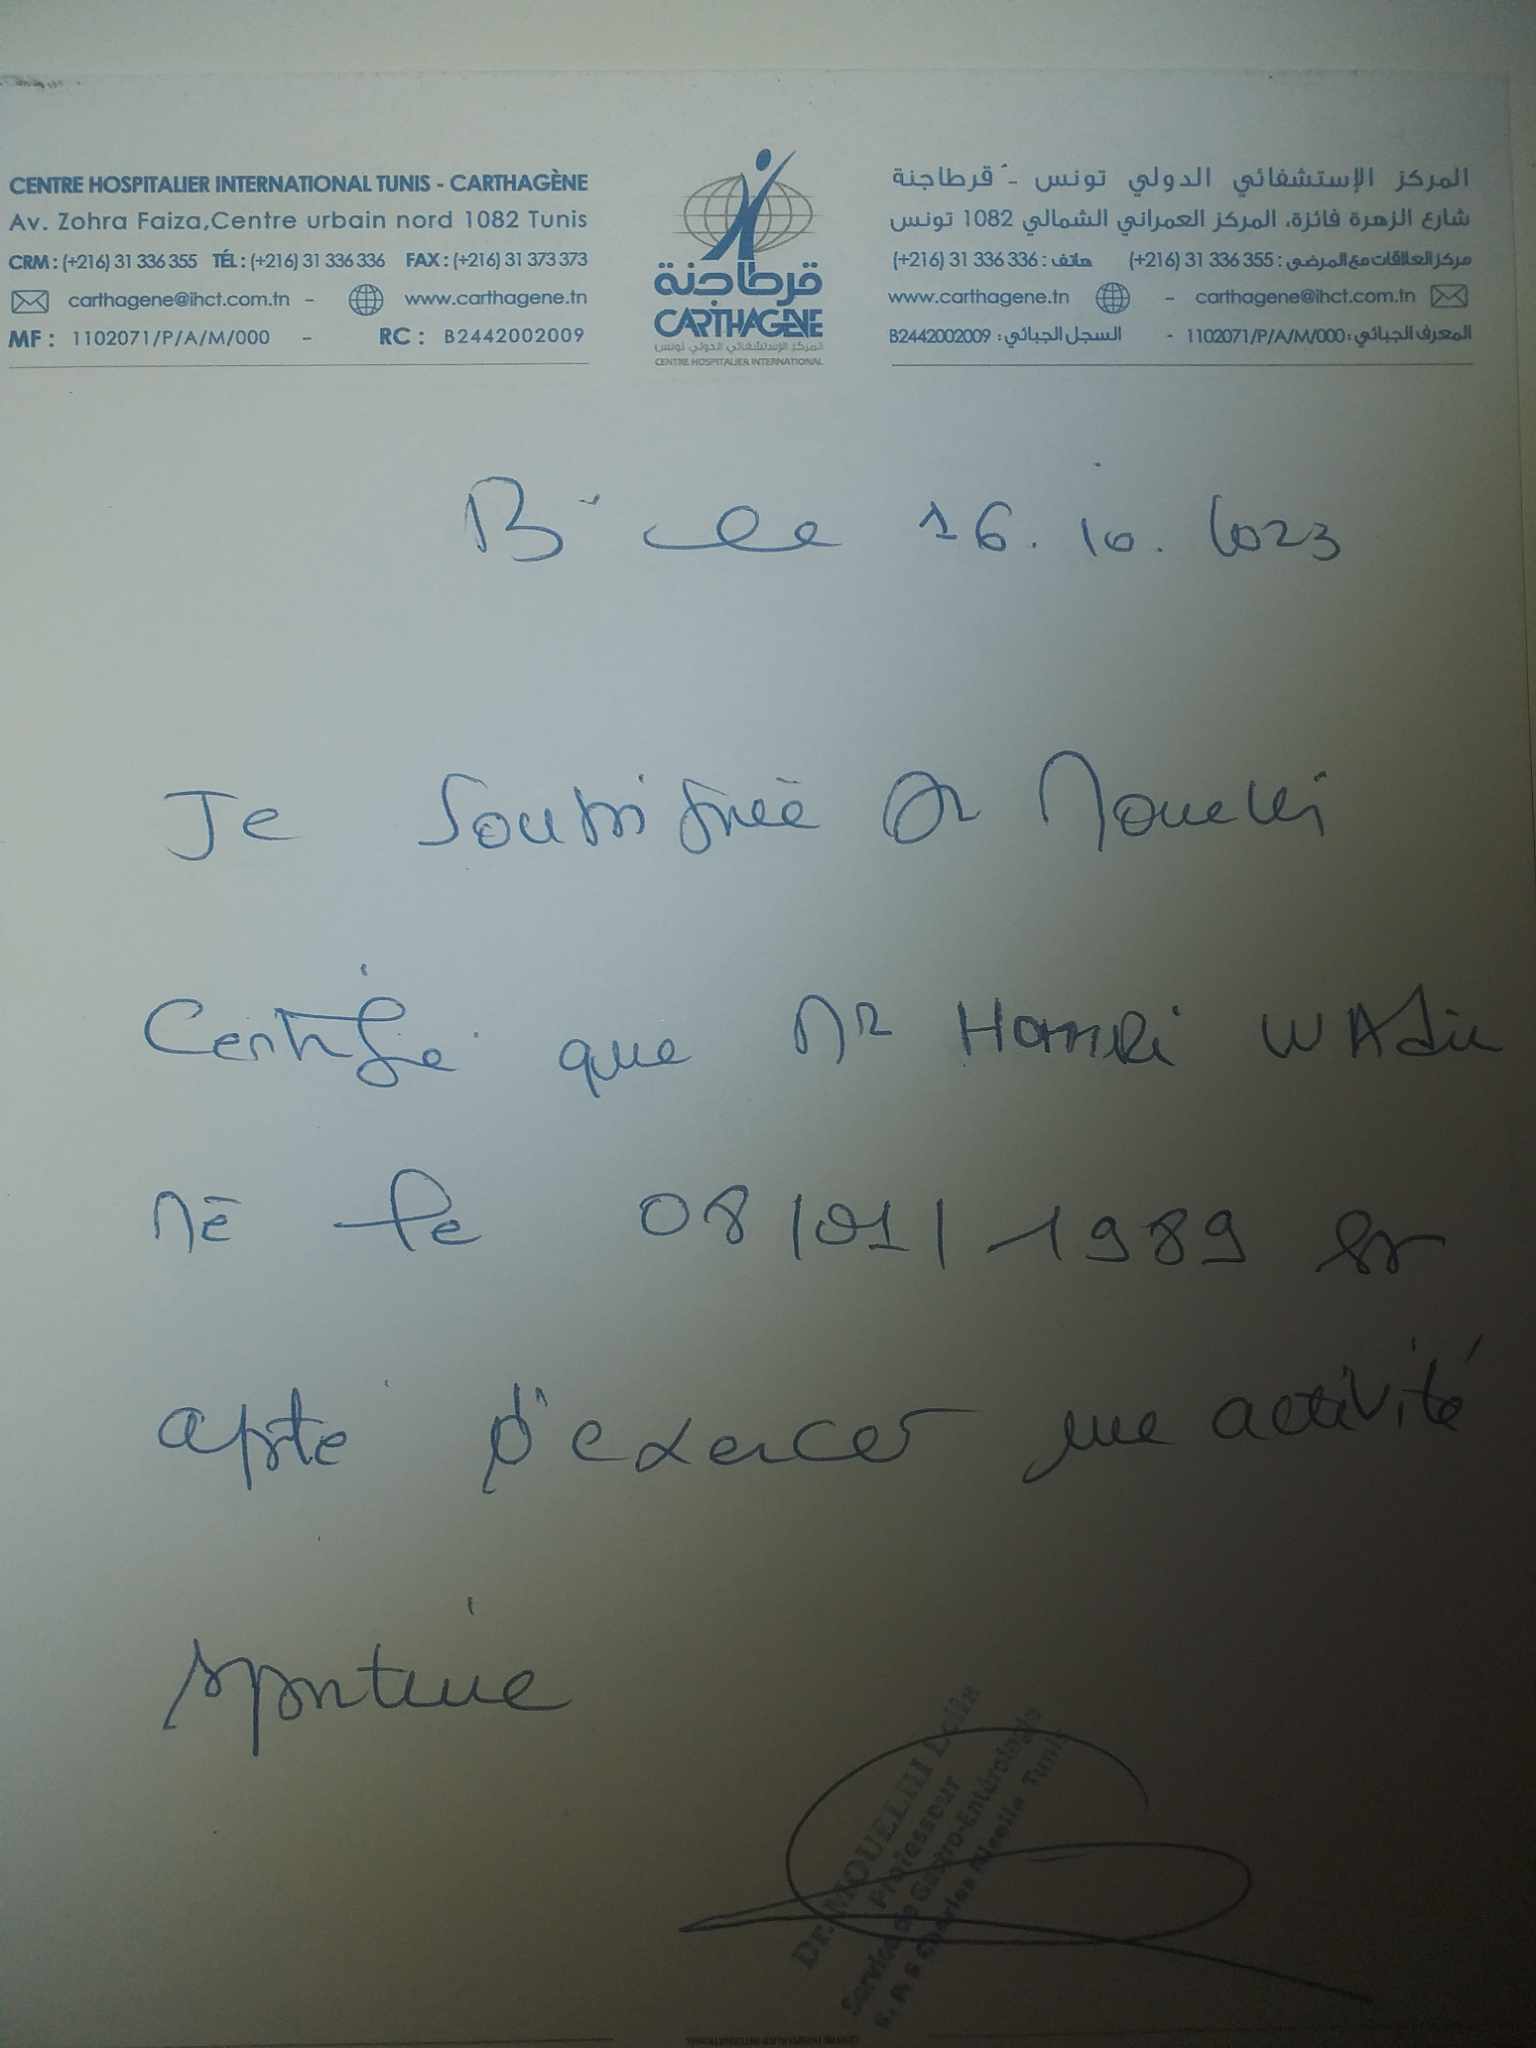 CENTRE HOSPITALIER INTERNATIONAL TUNIS - CARTHAGÈNE
Av. Zohra Faiza,Centre urbain nord 1082 Tunis
CRM : (+216) 31 336 355 TÉL : (+216) 31 336 336 FAX : (+216) 31 373 373
carthagene@ihct.com.tn - www.carthagene.tn
MF : 1102071/P/A/M/000 - RC : B2442002009
قرطاجنة
CARTHAGENE
المركز الإستشفائي الدولي تونس
CENTRE HOSPITALIER INTERNATIONAL
المركز الإستشفائي الدولي تونس - قرطاجنة
شارع الزهرة فائزة، المركز العمراني الشمالي 1082 تونس
مركز العلاقات مع المرضى : 355 336 31 (216+) هاتف : 336 336 31 (216+)
carthagene@ihct.com.tn - www.carthagene.tn
المعرف الجبائي : 1102071/P/A/M/000 - السجل الجبائي : B2442002009
le 16.10.2023
Je soussignée Dr Mouelhi
Certifie que Mr Hamdi WAdie
né le 08/01/1989 est
apte d'exercer une activité
sportive
Dr. MOUELHI Leila
Professeur
Service de Gastro-Entérologie
Charles Nicolle Tunis